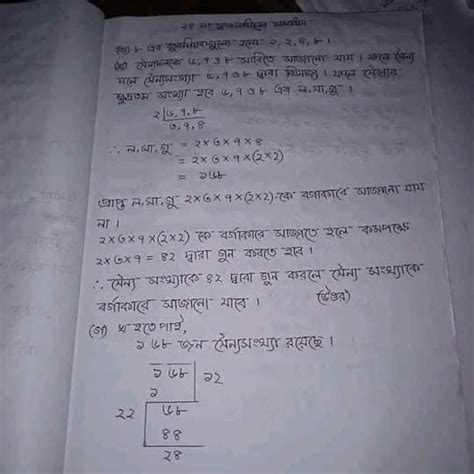 ২৪ নং সৃজনশীলের সমাধান
(ক) ৮ এর গুণনীয়কগুলো হলো ১, ২, ৪, ৮।
(খ) সৈন্যদলকে ৬, ৭ ও ৮ সারিতে সাজানো যায়। ফলে সৈন্য
দলে সৈন্যসংখ্যা ৬, ৭ ও ৮ দ্বারা বিভাজ্য। ফলে সৈন্যের
ক্ষুদ্রতম সংখ্যা হবে ৬, ৭ ও ৮ এর ল,সা,গু।
২ ৬, ৭, ৮
৩, ৭, ৪
∴ ল,সা,গু = ২×৩×৭×৪
= ২×৩×৭×(২×২)
= ১৬৮
প্রাপ্ত ল,সা,গু ২×৩×৭×(২×২)-কে বর্গাকারে সাজানো যায়
না।
২×৩×৭×(২×২) কে বর্গাকারে সাজাতে হলে কমপক্ষে
২×৩×৭ = ৪২ দ্বারা গুন করতে হবে।
∴ সৈন্য সংখ্যাকে ৪২ দ্বারা গুন করলে সৈন্য সংখ্যাকে
বর্গাকারে সাজানো যাবে। (উত্তর)
(গ) খ হতে পাই,
১৬৮ জন সৈন্যসংখ্যা রয়েছে।
১ ৬৮ ১২
১
২২ ৬৮
৪৪
২৪